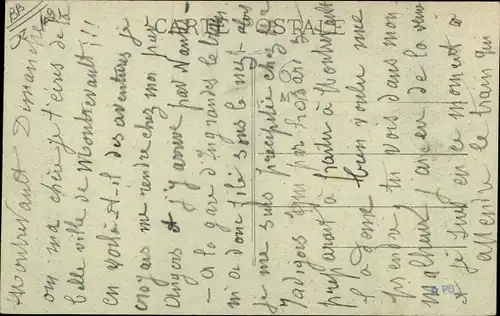 CARTE POSTALE
Montrevault Dimanche
oui ma chère je t'écris de la
belle ville de Montrevault!!!
en voilà-t-il des aventures, je
croyais me rendre chez moi par
Angers et j'y arrive par Nantes
- à la gare d'Ingrandes le train
m'a donc filé sous le nez - alors
je me suis précipitée chez
qui par hasard se
préparait à partir à Montrevault
il a donc bien voulu me
prendre, tu vois dans mon
malheur j'ai eu de la veine
et je suis en ce moment à
attendre le train qui